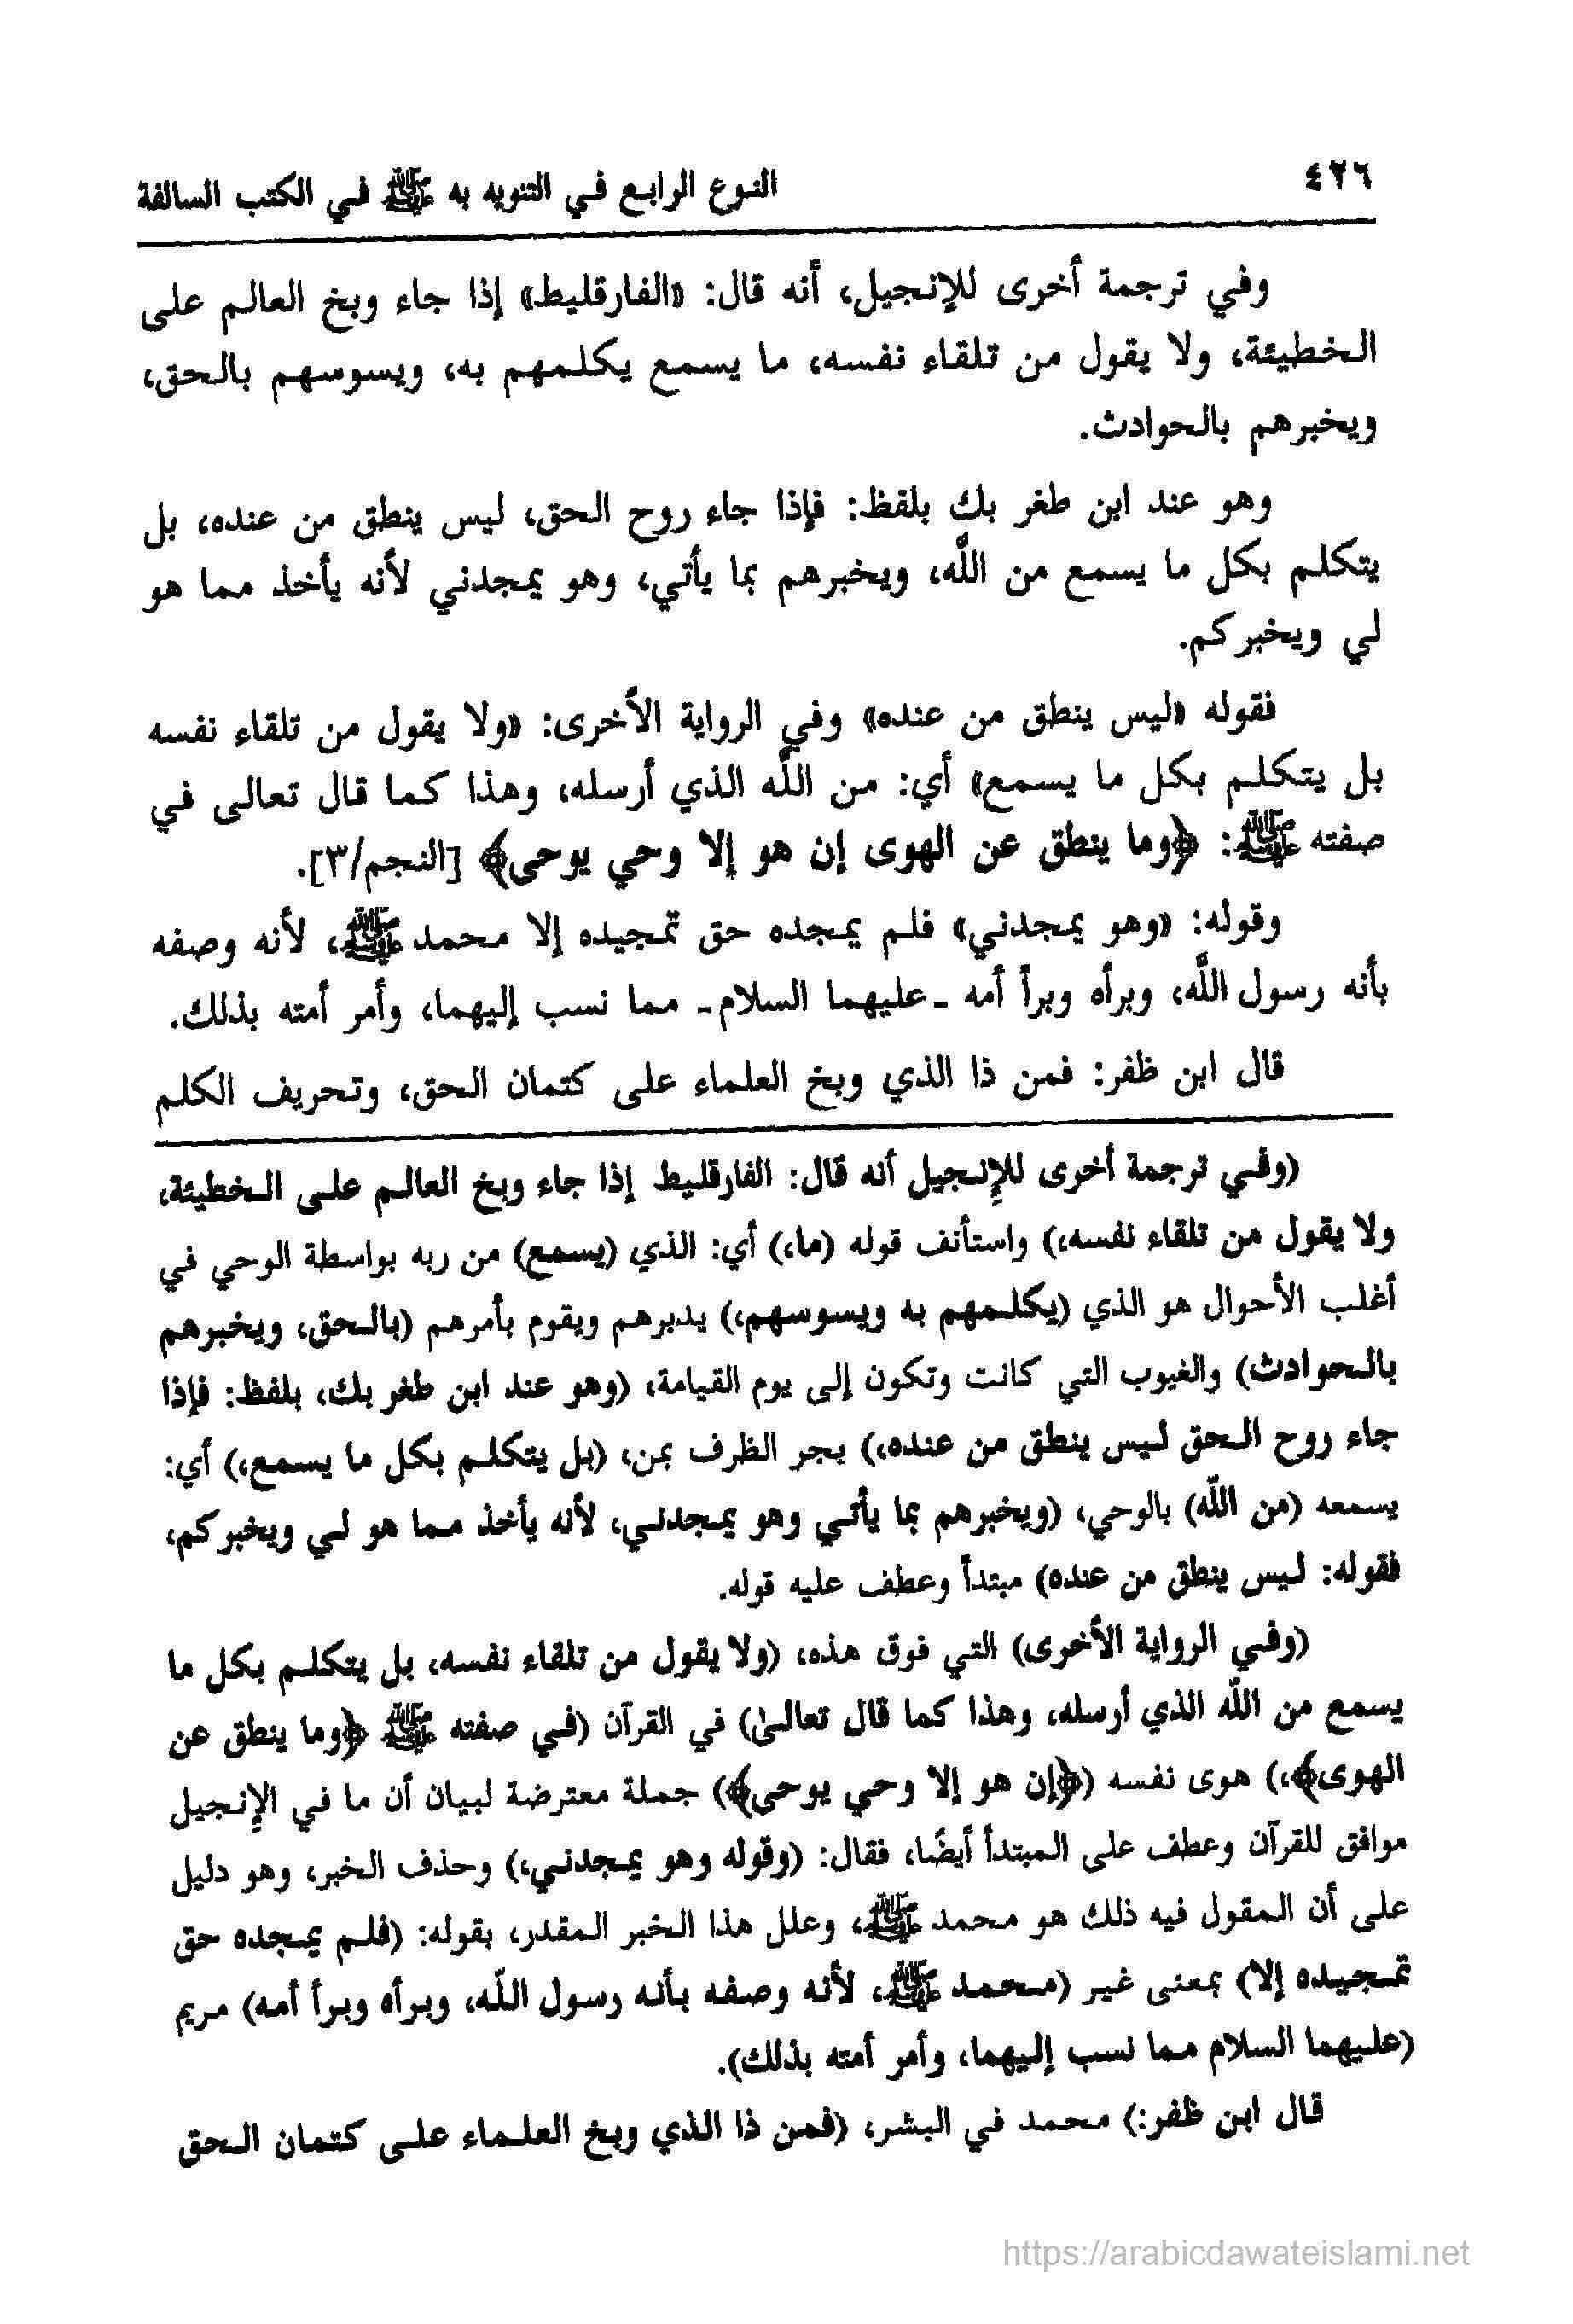 ٤٢٦
النوع الرابع في التنويه به ﷺ في الكتب السالفة
وفي ترجمة أخرى للإنجيل، أنه قال: «الفارقليط» إذا جاء وبخ العالم على
الخطيئة، ولا يقول من تلقاء نفسه، ما يسمع يكلمهم به، ويسوسهم بالحق،
ويخبرهم بالحوادث.
وهو عند ابن طغر بك بلفظ: فإذا جاء روح الحق، ليس ينطق من عنده، بل
يتكلم بكل ما يسمع من اللَّه، ويخبرهم بما يأتي، وهو يمجدني لأنه يأخذ مما هو
لي ويخبركم.
فقوله «ليس ينطق من عنده» وفي الرواية الأخرى: «ولا يقول من تلقاء نفسه
بل يتكلم بكل ما يسمع» أي: من اللَّه الذي أرسله، وهذا كما قال تعالى في
صفته ﷺ: ﴿وما ينطق عن الهوى إن هو إلا وحي يوحى﴾ [النجم/٣].
وقوله: «وهو يمجدني» فلم يمجده حق تمجيده إلا محمد ﷺ، لأنه وصفه
بأنه رسول اللَّه، وبرأه وبرأ أمه ـ عليهما السلام ـ مما نسب إليهما، وأمر أمته بذلك.
قال ابن ظفر: فمن ذا الذي وبخ العلماء على كتمان الحق، وتحريف الكلم
(وفي ترجمة أخرى للإِنجيل أنه قال: الفارقليط إذا جاء وبخ العالم على الخطيئة،
ولا يقول من تلقاء نفسه،) واستأنف قوله (ما،) أي: الذي (يسمع) من ربه بواسطة الوحي في
أغلب الأحوال هو الذي (يكلمهم به ويسوسهم،) يدبرهم ويقوم بأمرهم (بالحق، ويخبرهم
بالحوادث) والغيوب التي كانت وتكون إلى يوم القيامة، (وهو عند ابن طغر بك، بلفظ: فإذا
جاء روح الحق ليس ينطق من عنده،) بجر الظرف بمن، (بل يتكلم بكل ما يسمع،) أي:
يسمعه (من اللّه) بالوحي، (ويخبرهم بما يأتي وهو يمجدني، لأنه يأخذ مما هو لي ويخبركم،
فقوله: ليس ينطق من عنده) مبتدأ وعطف عليه قوله.
(وفي الرواية الأخرى) التي فوق هذه، (ولا يقول من تلقاء نفسه، بل يتكلم بكل ما
يسمع من اللّه الذي أرسله، وهذا كما قال تعالىٰ) في القرآن (في صفته ﷺ ﴿وما ينطق عن
الهوى﴾،) هوى نفسه (﴿إن هو إلا وحي يوحى﴾) جملة معترضة لبيان أن ما في الإِنجيل
موافق للقرآن وعطف على المبتدأ أيضًا، فقال: (وقوله وهو يمجدني،) وحذف الخبر، وهو دليل
على أن المقول فيه ذلك هو محمد ﷺ، وعلل هذا الخبر المقدر، بقوله: (فلم يمجده حق
تمجيده إلا) بمعنى غير (محمد ﷺ، لأنه وصفه بأنه رسول اللّه، وبرأه وبرأ أمه) مريم
(عليهما السلام مما نسب إليهما، وأمر أمته بذلك).
قال ابن ظفر:) محمد في البشر، (فمن ذا الذي وبخ العلماء على كتمان الحق
https://arabicdawateislami.net